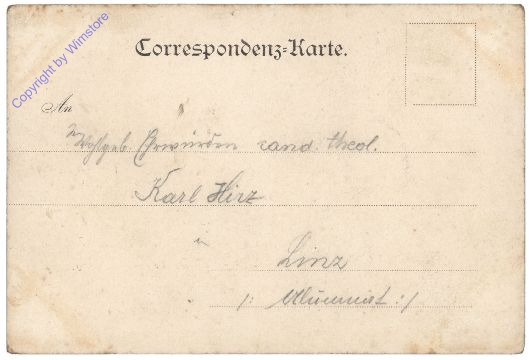 Copyright by Wimstore
Correspondenz-Karte.
An
Wohlgeb. Ehrwürden cand. theol.
Karl Hirz
Linz
/: Alumnist :/